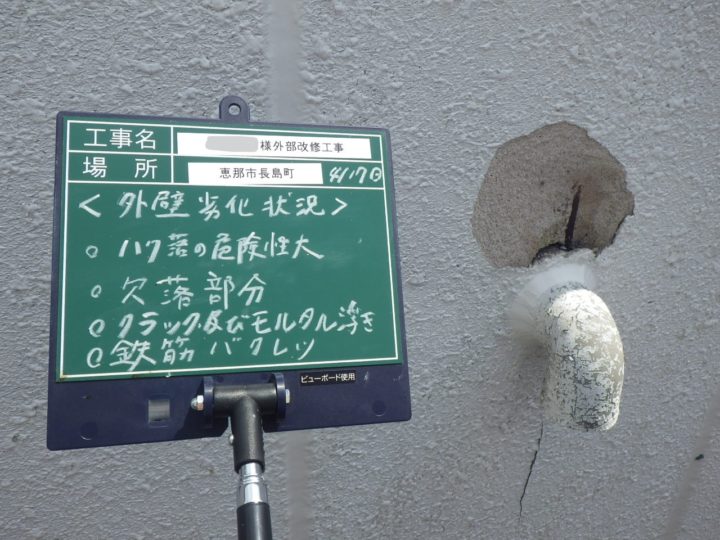 工事名 様外部改修工事
場所 恵那市長島町 4/17日
<外壁劣化状況>
○ハク落の危険性大
○欠落部分
○クラック及びモルタル浮き
○鉄筋バクレツ
ビューボード使用